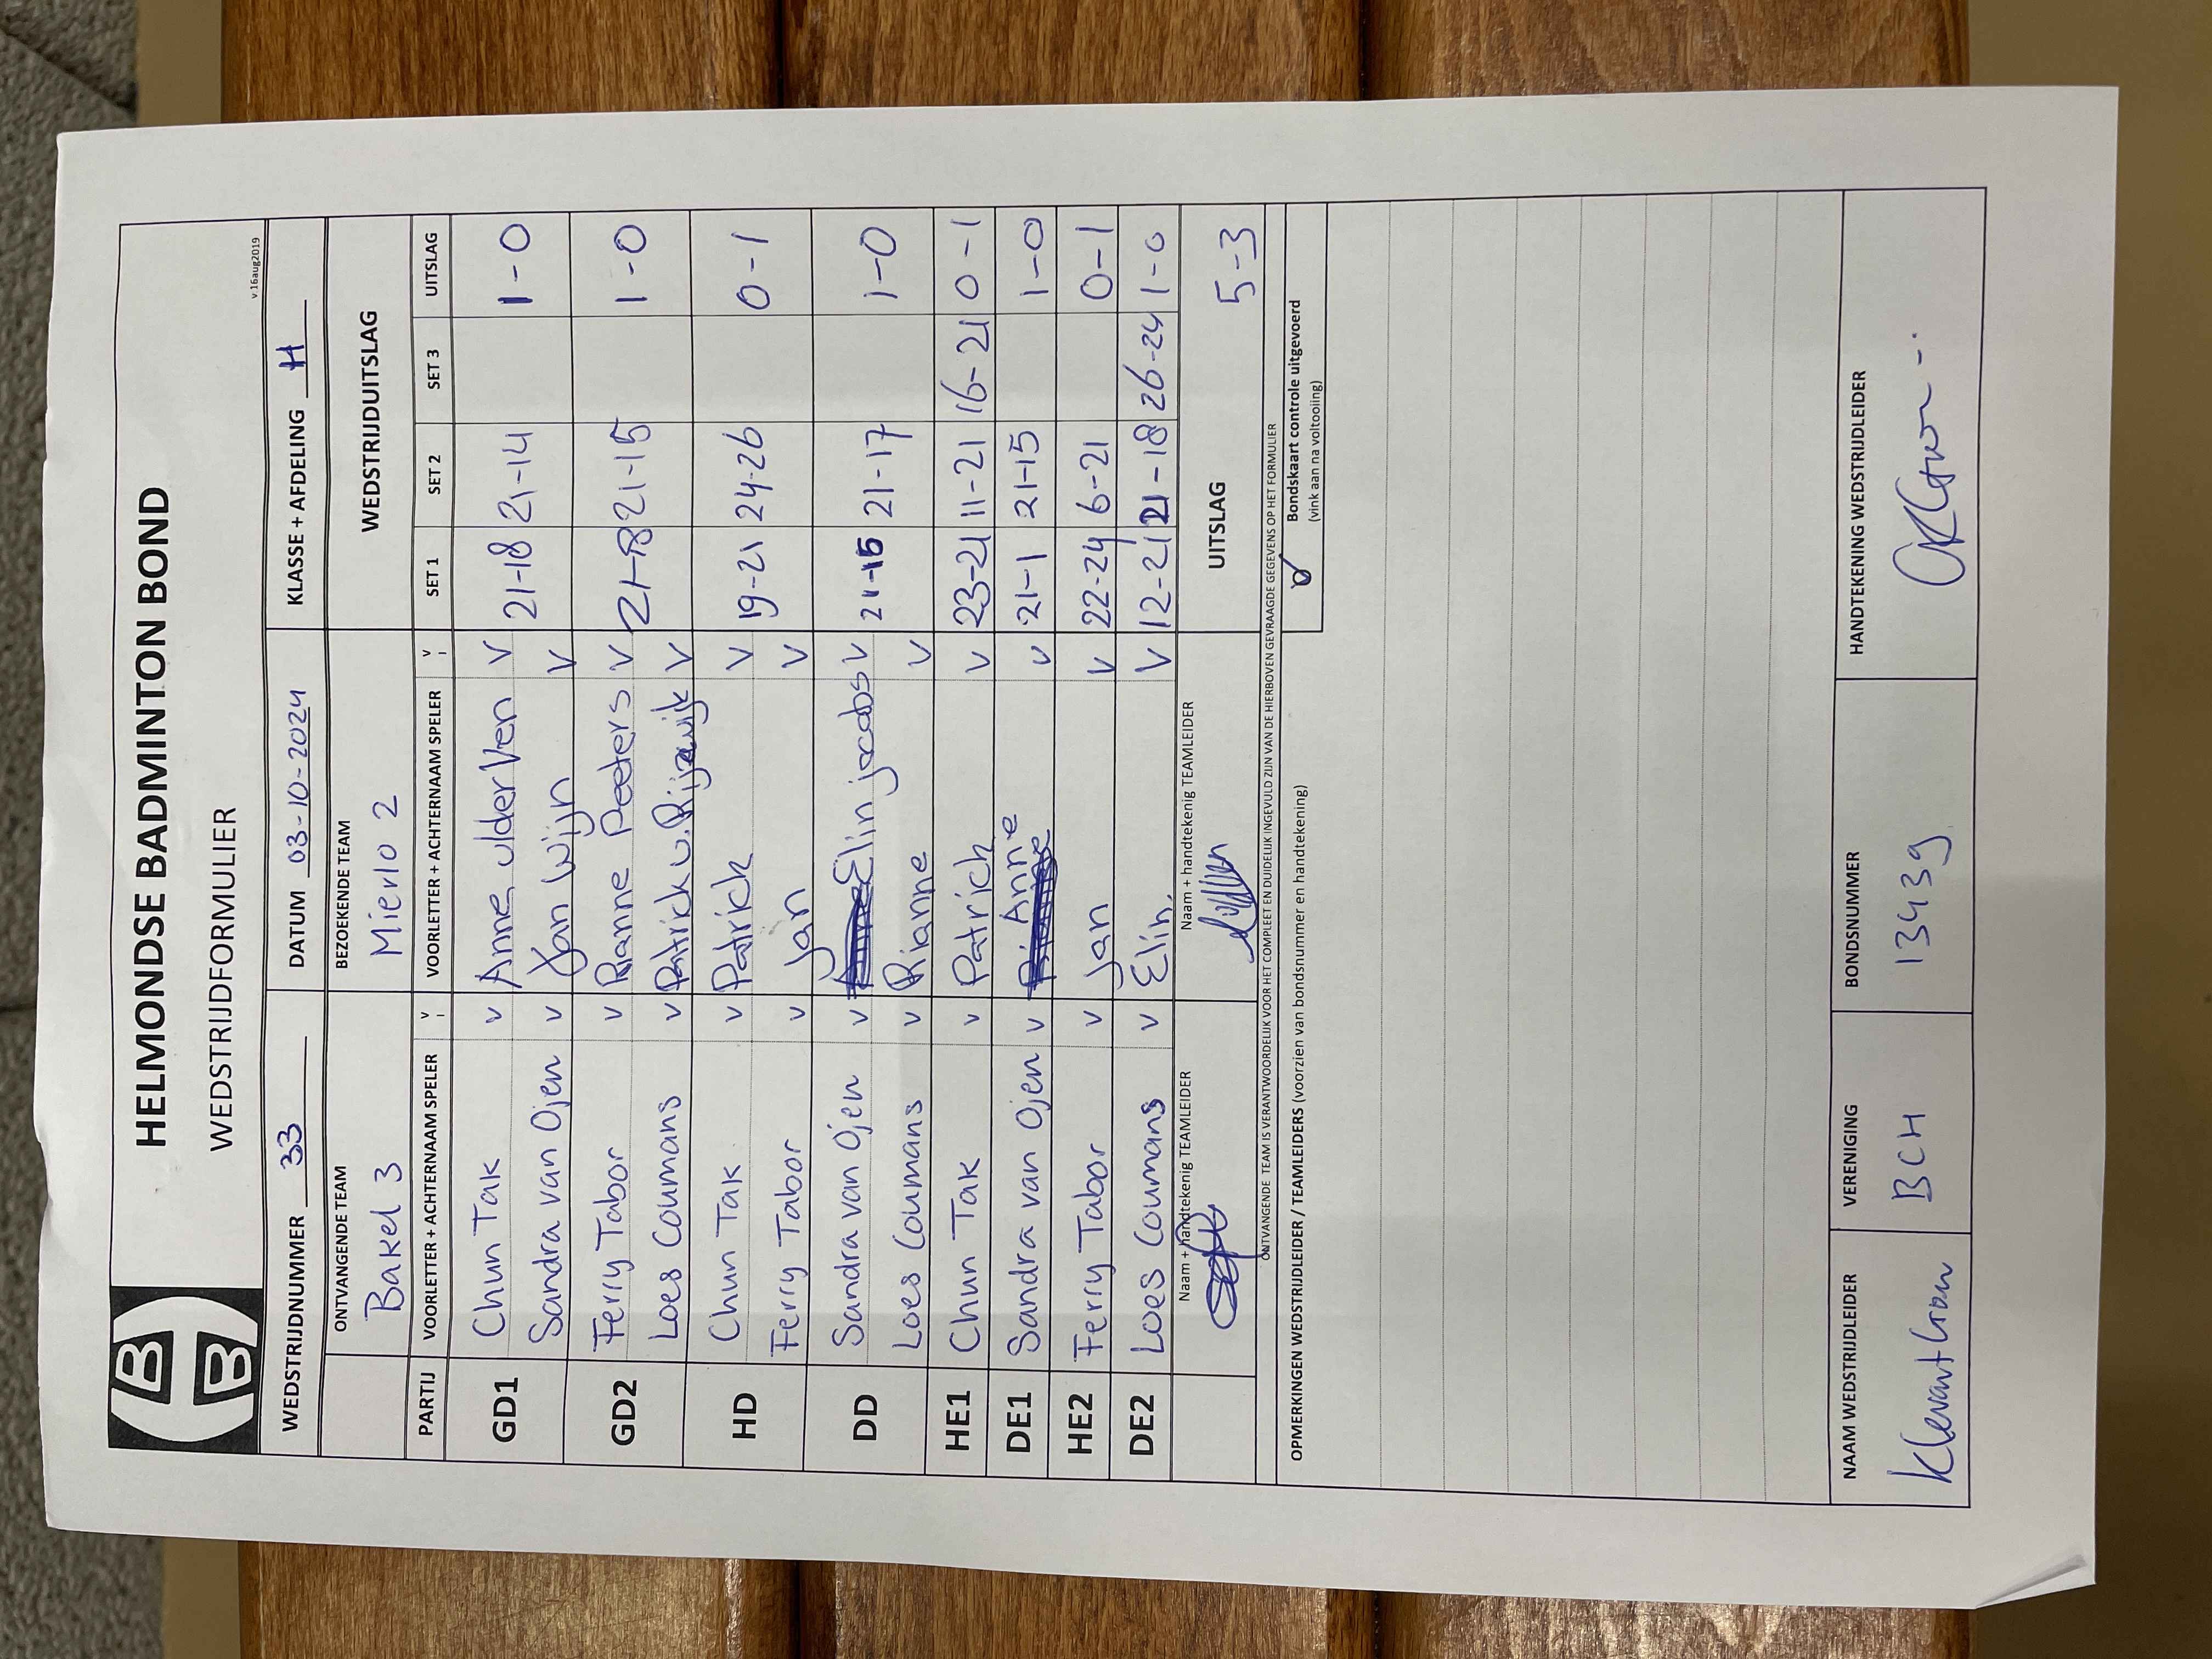 HELMONDSE BADMINTON BOND
WEDSTRIJDFORMULIER
v.16aug2019
WEDSTRIJDNUMMER 33 DATUM 03-10-2024 KLASSE + AFDELING H
ONTVANGENDE TEAM BEZOEKENDE TEAM WEDSTRIJDUITSLAG
Bakel 3 Mierlo 2
PARTIJ VOORLETTER + ACHTERNAAM SPELER V VOORLETTER + ACHTERNAAM SPELER V SET 1 SET 2 SET 3 UITSLAG
GD1 Chun Tak v Anne vlder Ven V 21-18 21-14 1-0
Sandra van Ojen v Jan Wijn V
GD2 Ferry Tabor v Rianne Peeters V 21-18 21-15 1-0
Loes Coumans v Patrick v. Rijswijk V
HD Chun Tak v Patrick V 19-21 24-26 0-1
Ferry Tabor v Jan V
DD Sandra van Ojen v Elin jacobs V 21-15 21-17 1-0
Loes Coumans v Rianne V
HE1 Chun Tak v Patrick V 23-21 11-21 16-21 0-1
DE1 Sandra van Ojen v Anne v 21-1 21-15 1-0
HE2 Ferry Tabor v Jan V 22-24 6-21 0-1
DE2 Loes Coumans v Elin. V 12-21 21-18 26-24 1-0
Naam + handtekenig TEAMLEIDER Naam + handtekenig TEAMLEIDER UITSLAG 5-3
ONTVANGENDE TEAM IS VERANTWOORDELIJK VOOR HET COMPLEET EN DUIDELIJK INGEVULD ZIJN VAN DE HIERBOVEN GEVRAAGDE GEGEVENS OP HET FORMULIER
OPMERKINGEN WEDSTRIJDLEIDER / TEAMLEIDERS (voorzien van bondsnummer en handtekening) Bondskaart controle uitgevoerd
(vink aan na voltooiing)
NAAM WEDSTRIJDLEIDER VERENIGING BONDSNUMMER HANDTEKENING WEDSTRIJDLEIDER
BCH 13439